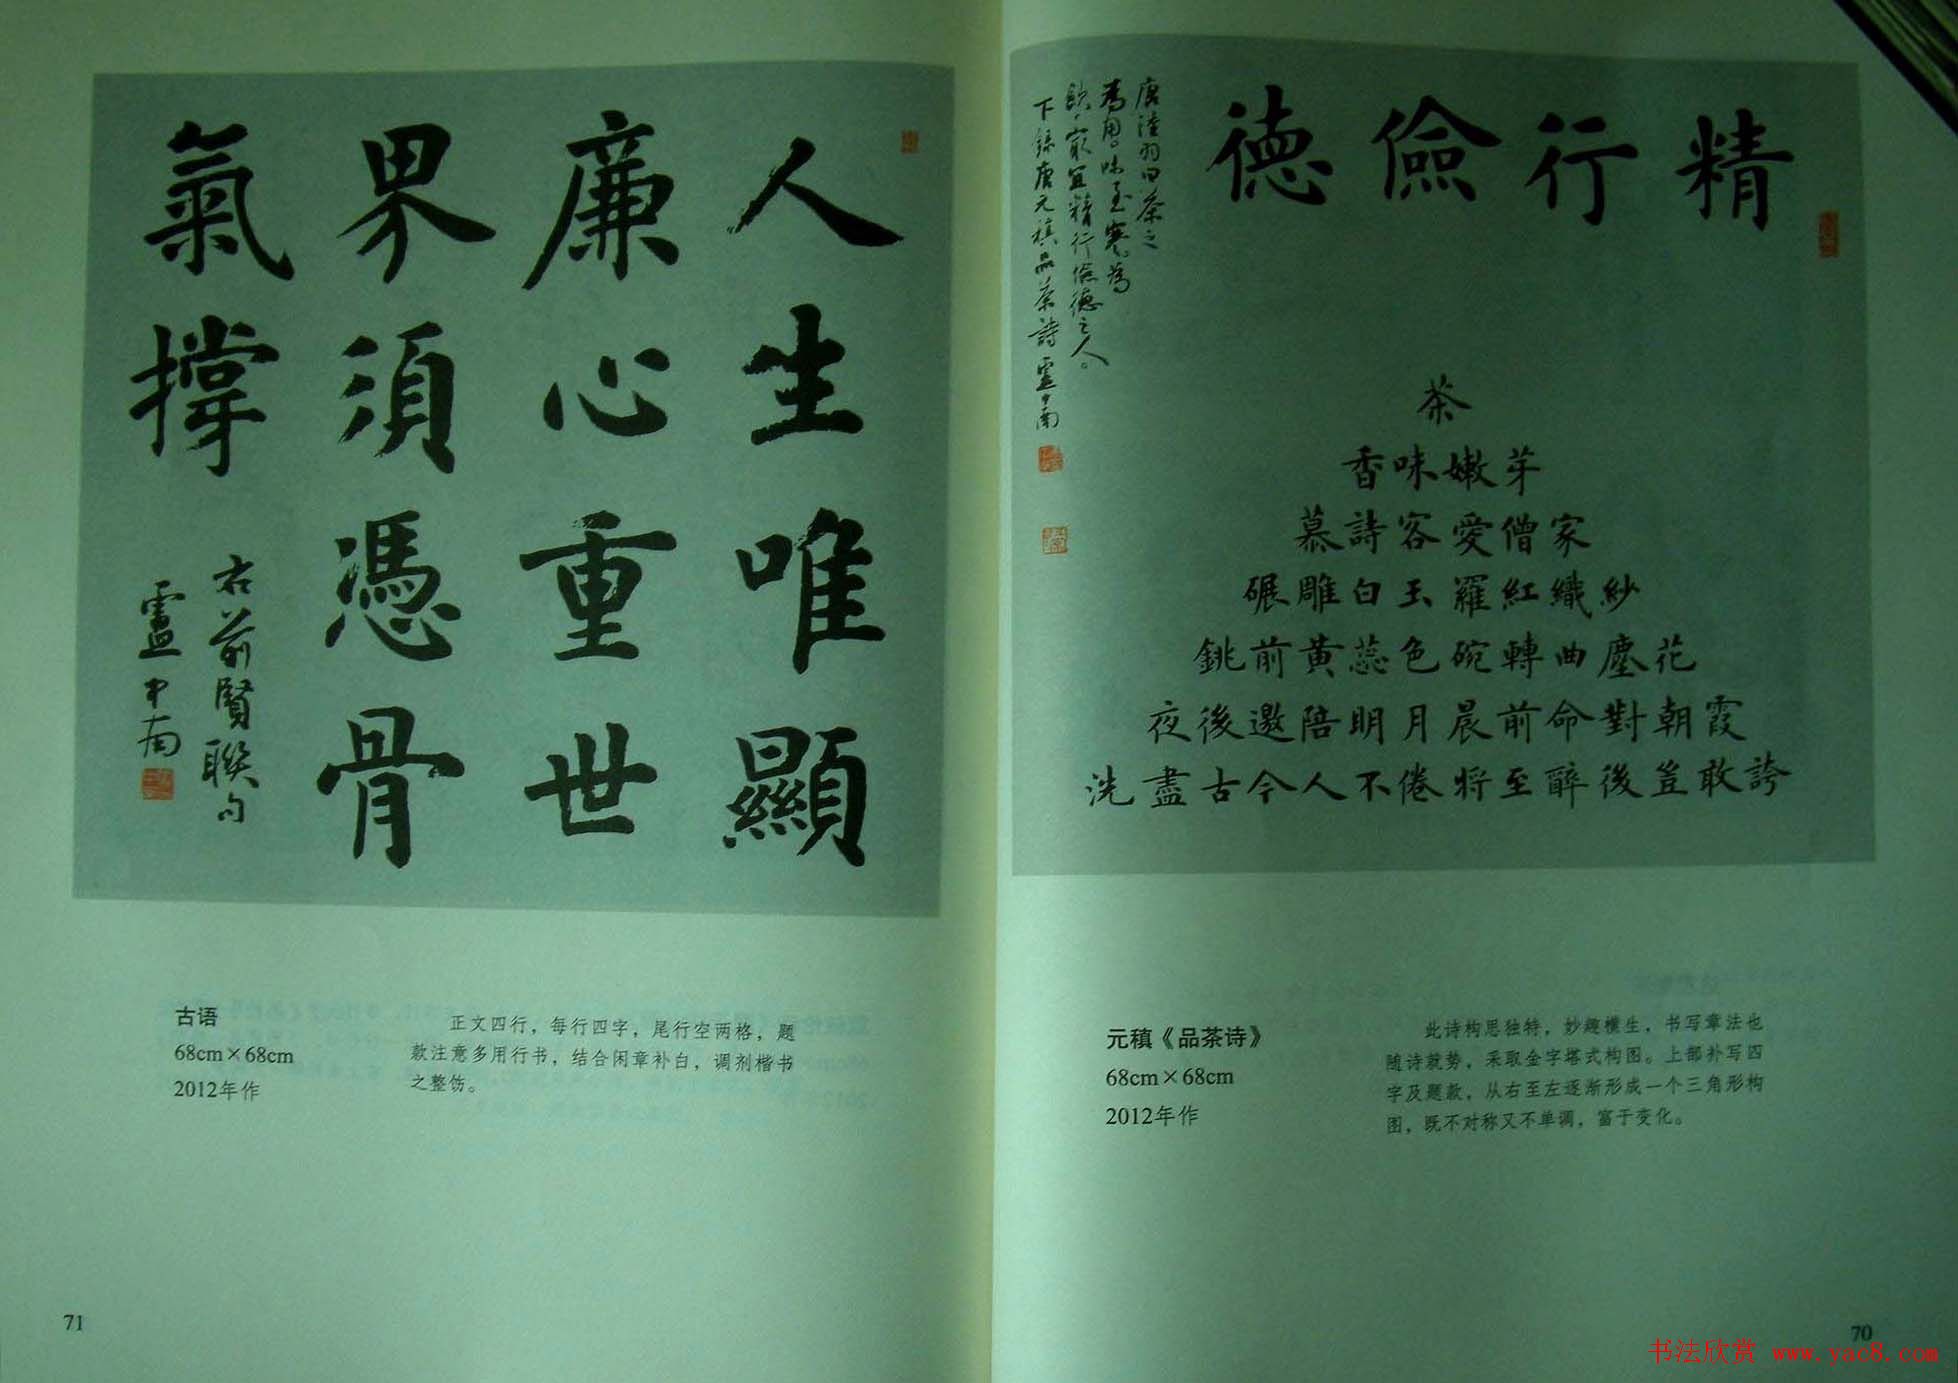 精行儉德
唐陸羽曰茶之
為用味至寒為
飲最宜精行儉德之人。
下録唐元稹品茶詩 盧中南
茶
香味嫩芽
慕詩客愛僧家
碾雕白玉羅紅織紗
銚前黄蕊色碗轉曲塵花
夜後邀陪明月晨前命對朝霞
洗盡古今人不倦將至醉後豈敢誇
元稹《品茶诗》
68cm×68cm
2012年作
此诗构思独特，妙趣横生，书写章法也
随诗就势，采取金字塔式构图。上部补写四
字及题款，从右至左逐渐形成一个三角形构
图，既不对称又不单调，富于变化。
70
人生唯顯
廉心重世
界須憑骨
氣撐
右前賢聯句
盧中南
古语
68cm×68cm
2012年作
正文四行，每行四字，尾行空两格，题
款注意多用行书，结合闲章补白，调剂楷书
之整饬。
71
书法欣赏 www.yac8.com